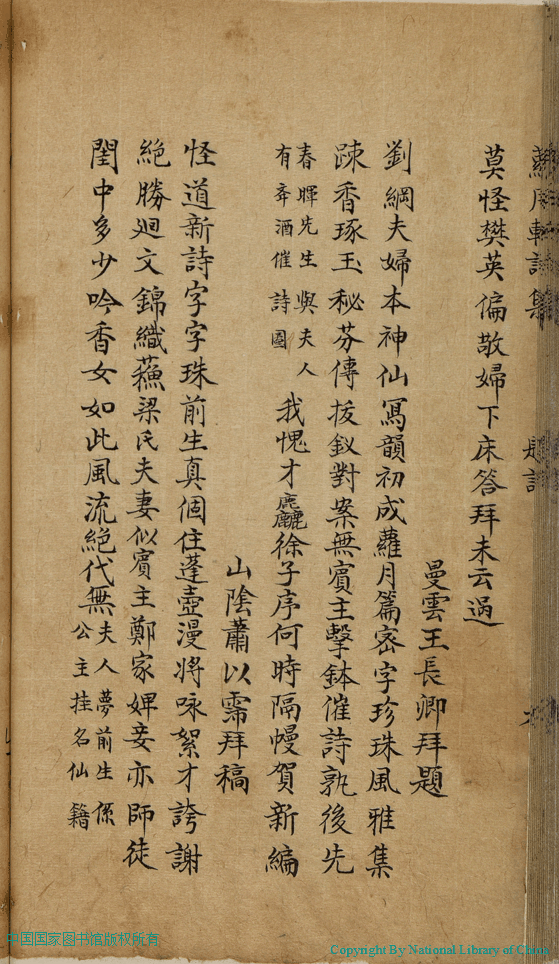 莫怪樊英偏敬婦下床答拜未云過
曼雲王長卿拜題
劉綱夫婦本神仙冩韻初成蘿月篇密字珍珠風雅集
踈香琢玉秘芬傳拔釵對案無賓主擊鉢催詩孰後先
春暉先生與夫人
有弆酒催詩圖
我愧才麤徐子序何時隔幔賀新編
山陰蕭以霈拜稿
怪道新詩字字珠前生真個住蓬壺漫將咏絮才誇謝
絶勝廻文錦織蘓梁氏夫妻似賓主鄭家婢妾亦師徒
閨中多少吟香女如此風流絶代無
夫人夢前生係
公主挂名仙籍
中国国家图书馆版权所有
Copyright By National Library of China